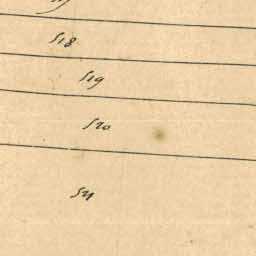 518
519
520
521